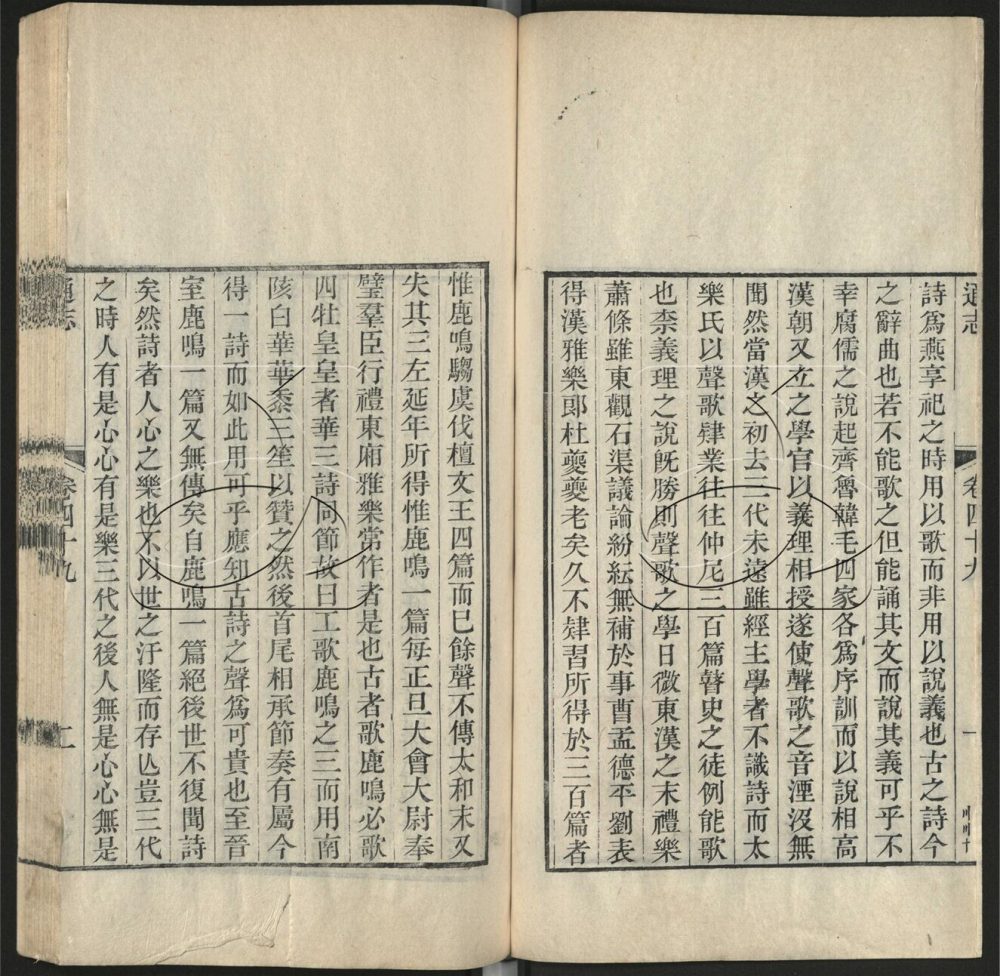 通志
卷四十九
一
詩爲燕享祀之時用以歌而非用以說義也古之詩今
之辭曲也若不能歌之但能誦其文而說其義可乎不
幸腐儒之說起齊魯韓毛四家各爲序訓而以說相高
漢朝又立之學官以義理相授遂使聲歌之音湮沒無
聞然當漢之初去三代未遠雖經主學者不識詩而太
樂氏以聲歌肄業往往仲尼三百篇瞽史之徒例能歌
也柰義理之說旣勝則聲歌之學日微東漢之末禮樂
蕭條雖東觀石渠議論紛紜無補於事曹孟德平劉表
得漢雅樂郞杜夔夔老矣久不肄習所得於三百篇者
惟鹿鳴騶虞伐檀文王四篇而已餘聲不傳太和末又
失其三左延年所得惟鹿鳴一篇每正旦大會大尉奉
璧羣臣行禮東廂雅樂常作者是也古者歌鹿鳴必歌
四牡皇皇者華三詩同節故曰工歌鹿鳴之三而用南
陔白華華黍三笙以贊之然後首尾相承節奏有屬今
得一詩而如此用可乎應知古詩之聲爲可貴也至晉
室鹿鳴一篇又無傳矣自鹿鳴一篇絕後世不復聞詩
矣然詩者人心之樂也不以世之汙隆而存亾豈三代
之時人有是心心有是樂三代之後人無是心心無是
通志
卷四十九